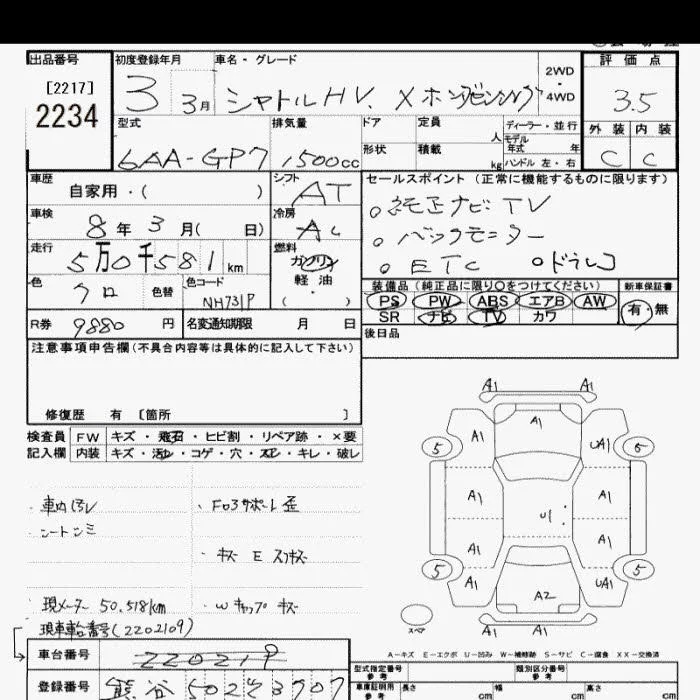 出品番号 初度登録年月 車名・グレード 2WD・4WD 評価点
[2217]
2234
3 3月 シャトルHV. X ホンダセンシング 3.5
型式 排気量 ドア 定員 人 ディーラー・並行 外装 内装
6AA-GP7 1500cc 形状 積載 kg モデル年式 年 ハンドル 左・右 C C
車歴 自家用・( ) シフト AT セールスポイント(正常に機能するものに限ります)
車検 8年3月( 日) 冷房 AC
。純正ナビTV
。バックモニター
。ETC 。ドラレコ
走行 5万0千581km 燃料 ガソリン 軽油 ( )
色 クロ 色替 色コード NH731P
装備品(純正品に限り○をつけてください) 新車保証書
PS PW ABS エアB AW 有・無
SR ナビ TV カワ
R券 9880円 名変通知期限 月 日 後日品
注意事項申告欄(不具合内容等は具体的に記入して下さい)
修復歴 有 〔箇所 〕
検査員 FW キズ・飛石・ヒビ割・リペア跡・×要
記入欄 内装 キズ・汚レ・コゲ・穴・スレ・キレ・破レ
・車内汚レ
・シートシミ
・F03サポート歪
・キズ E スリキズ
・現メーター 50,518km
・W キャップ キズ
現車車台番号(2202109)
車台番号 220219
登録番号 熊谷502
A1 A1
A1 A1 UA1
5 5
A1 A1
U1
A1 A1
5 5
A1 A2 UA1
A1 A1
スペア
A-キズ E-エクボ U-凹み W-補修跡 S-サビ C-腐食 XX-交換済
型式指定番号 参考 類別区分番号 参考
車庫証明用 参考 長さ cm 幅 cm 高さ cm